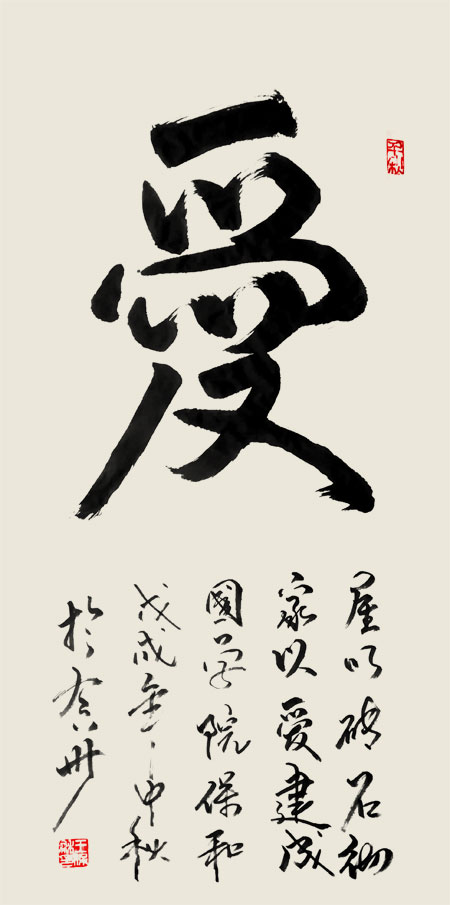 愛
屋以磚石砌
家以愛建成
國學院保和
戊戌年中秋
於州